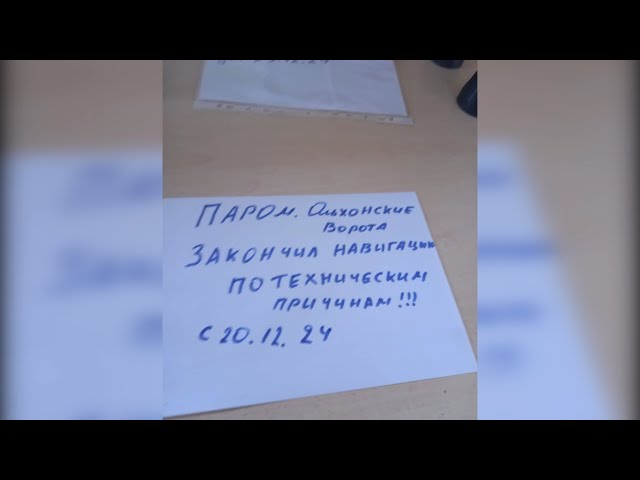 ПАРОМ. Ольхонские
Ворота
ЗАКОНЧИЛ НАВИГАЦИЮ
ПО ТЕХНИЧЕСКИМ
ПРИЧИНАМ!!!
С 20.12.24